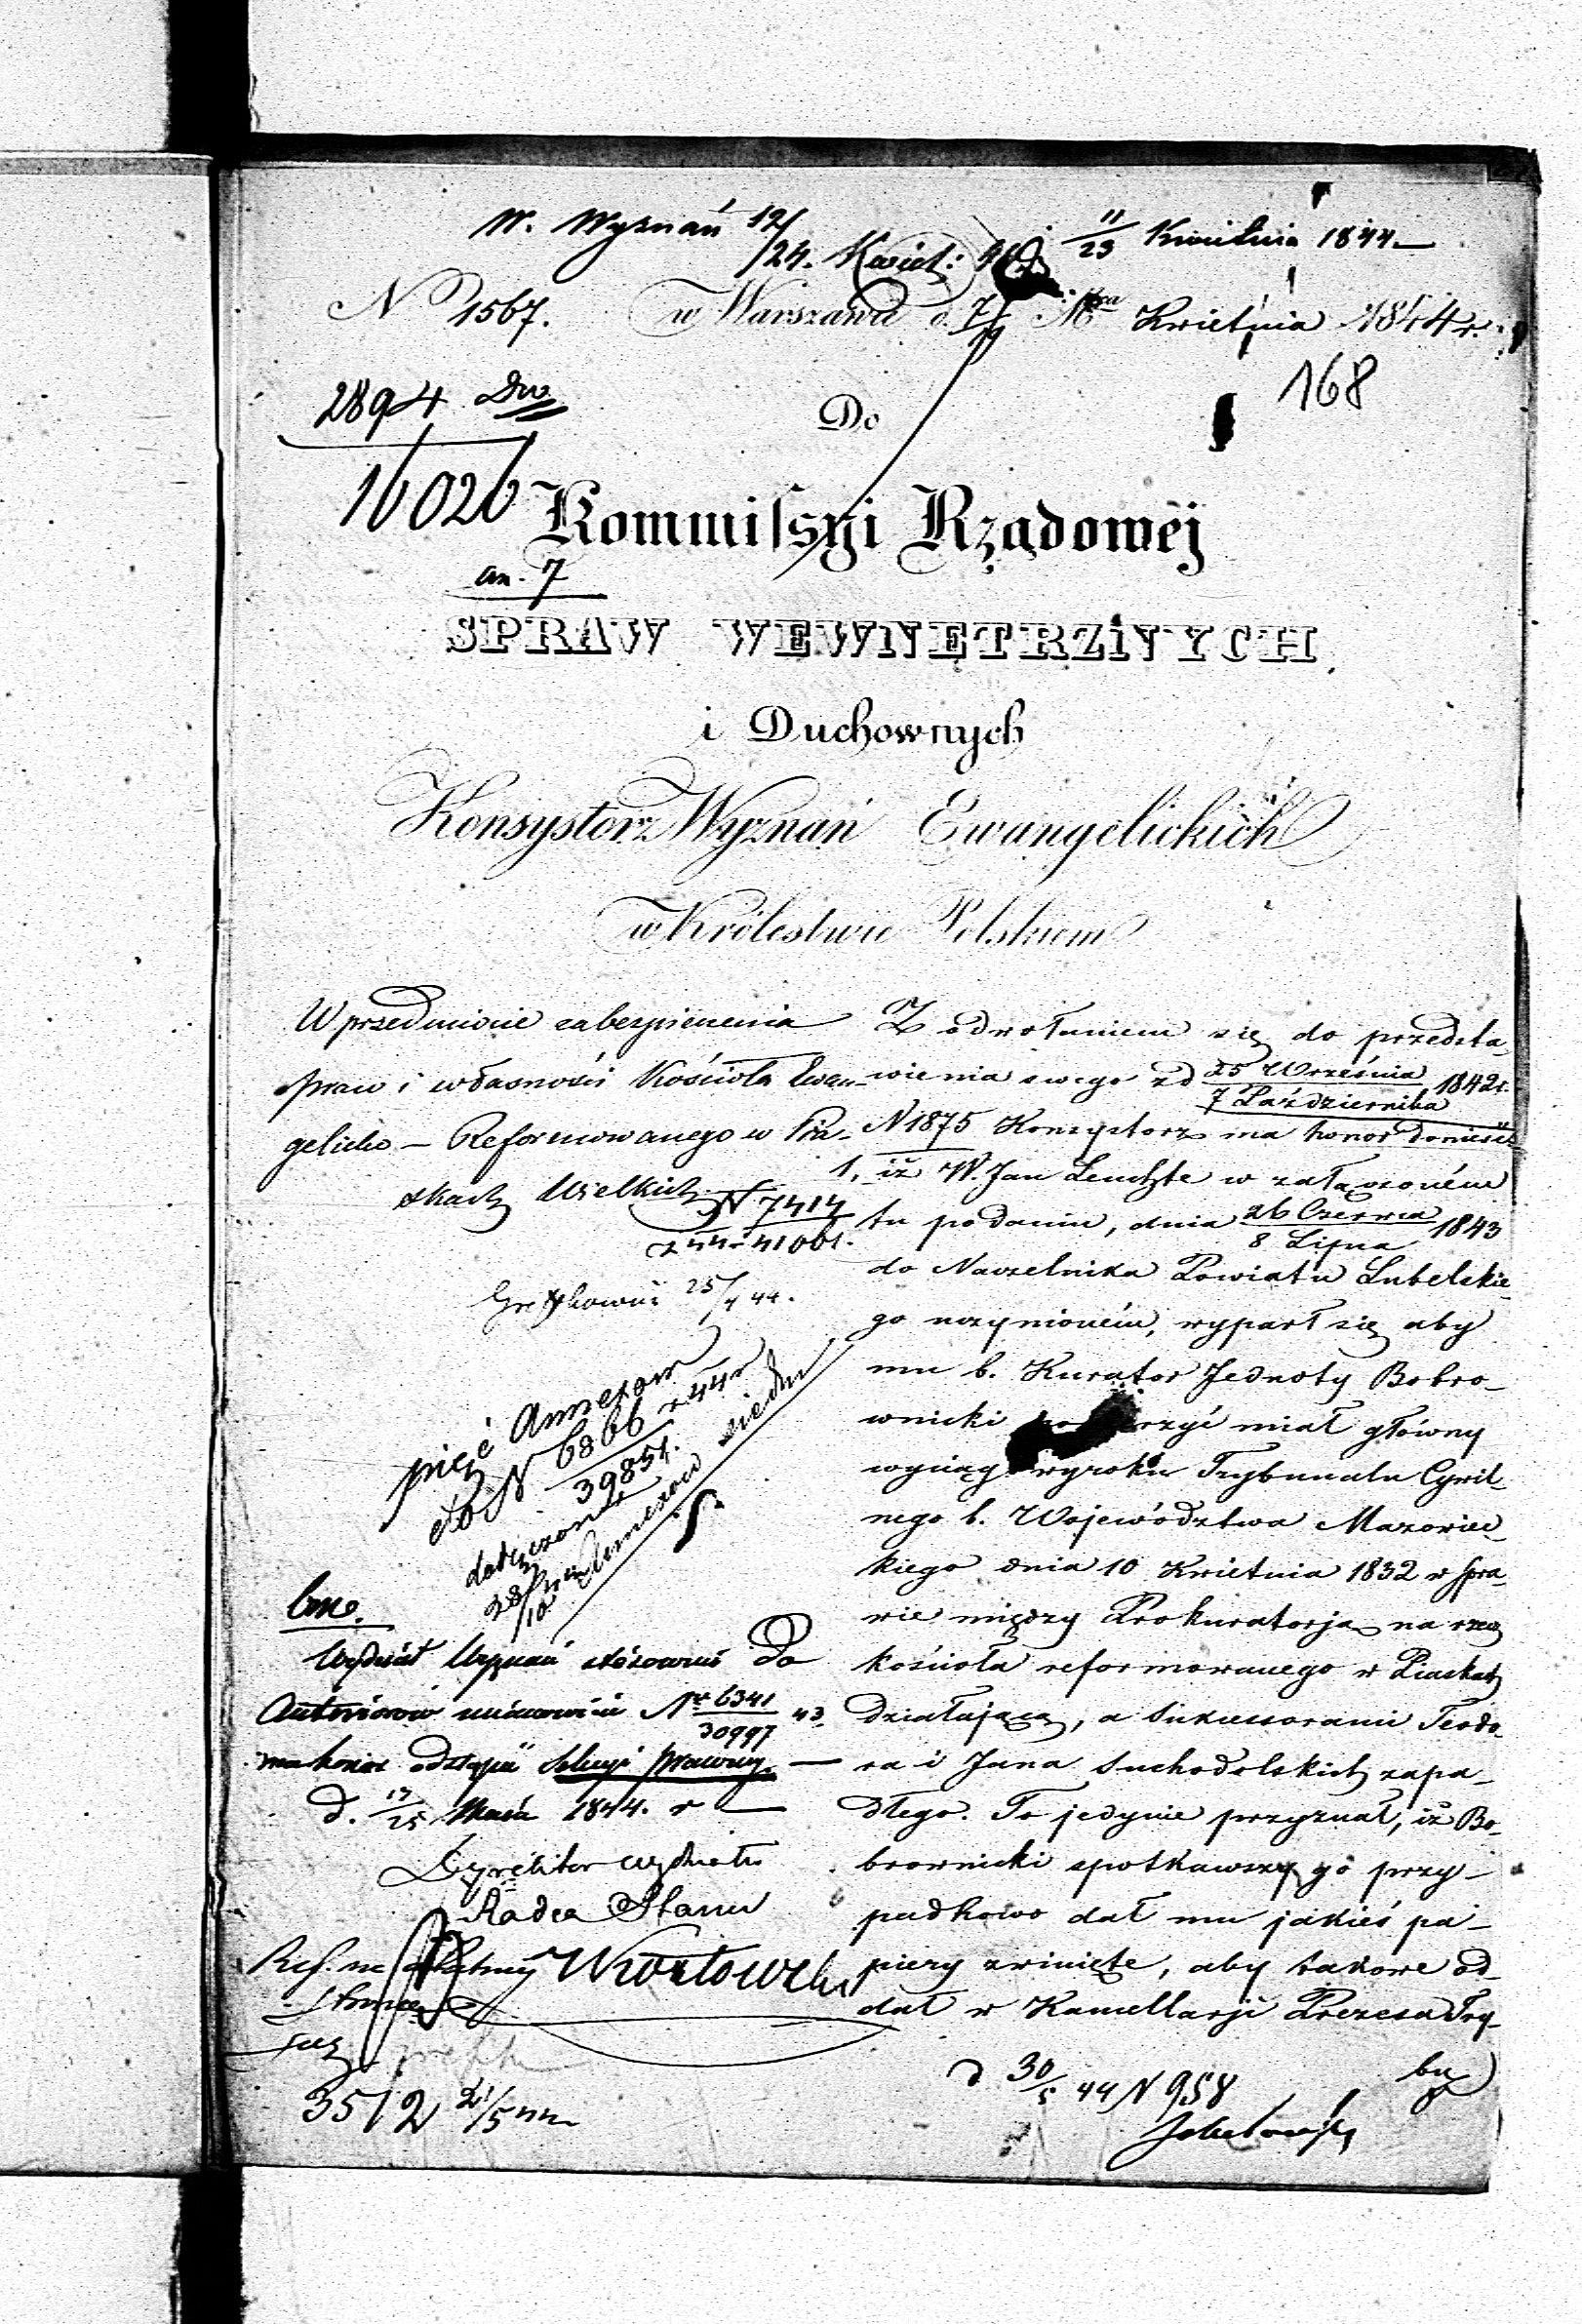 W. Wyznań 12/24. Kwiet: 11/23 Kwietnia 1844
N 1567. w Warszawie d. 7/19 Kwietnia 1844 r.
168
2894 Dw
16026
Do
Kommissyi Rządowéj
an. 7
SPRAW WEWNĘTRZNYCH
i Duchownych
Konsystorz Wyznań Ewangelickich
w Królestwie Polskiem
W przedmiocie zabezpieczenia
praw i własności Kościoła Ewan-
gelicko - Reformowanego w Pia-
skach Wielkich
N 7414
41001.
25/4 44.
pięć Annexów
do N 6866 z 44 r
39851.
dołączono
28/10 Annexów siedm
Wydział Wyznań stósownie do
Anteriorów mianowicie Nr 6341/30997 43
ma honor odstąpić Sekcyi prawnéj.
d. 13/25 Maja 1844. r
Dyrektor Wydziału
Radca Stanu
3512 21/5 44
Z odwołaniem się do przedsta-
wienia swego z d 25 Września/7 Października 1842 r.
N 1875 Konsystorz ma honor donieść
1, iż W. Jan Leuchte w załączoném
tu podaniu, dnia 26 Czerwca/8 Lipca 1843
do Naczelnika Powiatu Lubelskie-
go uczynioném, wyparł się aby
mu b. Kurator Jednoty Bobro-
wnicki miał główny
wyciąg wyroku Trybunału Cywil-
nego b. Województwa Mazowiec-
kiego dnia 10 Kwietnia 1832 w spra-
wie między Prokuratorją na rzecz
kościoła reformowanego w Piaskach
działającą, a Sukcessorami Teodo-
ra i Jana Suchodolskich zapa-
dłego. To jedynie przyznał, iż Bo-
brownicki spotkawszy go przy-
padkowo dał mu jakieś pa-
piery zwinięte, aby takowe od-
dał w Kancellarji Prezesa Try-
bu
d 30/5 44 N 958